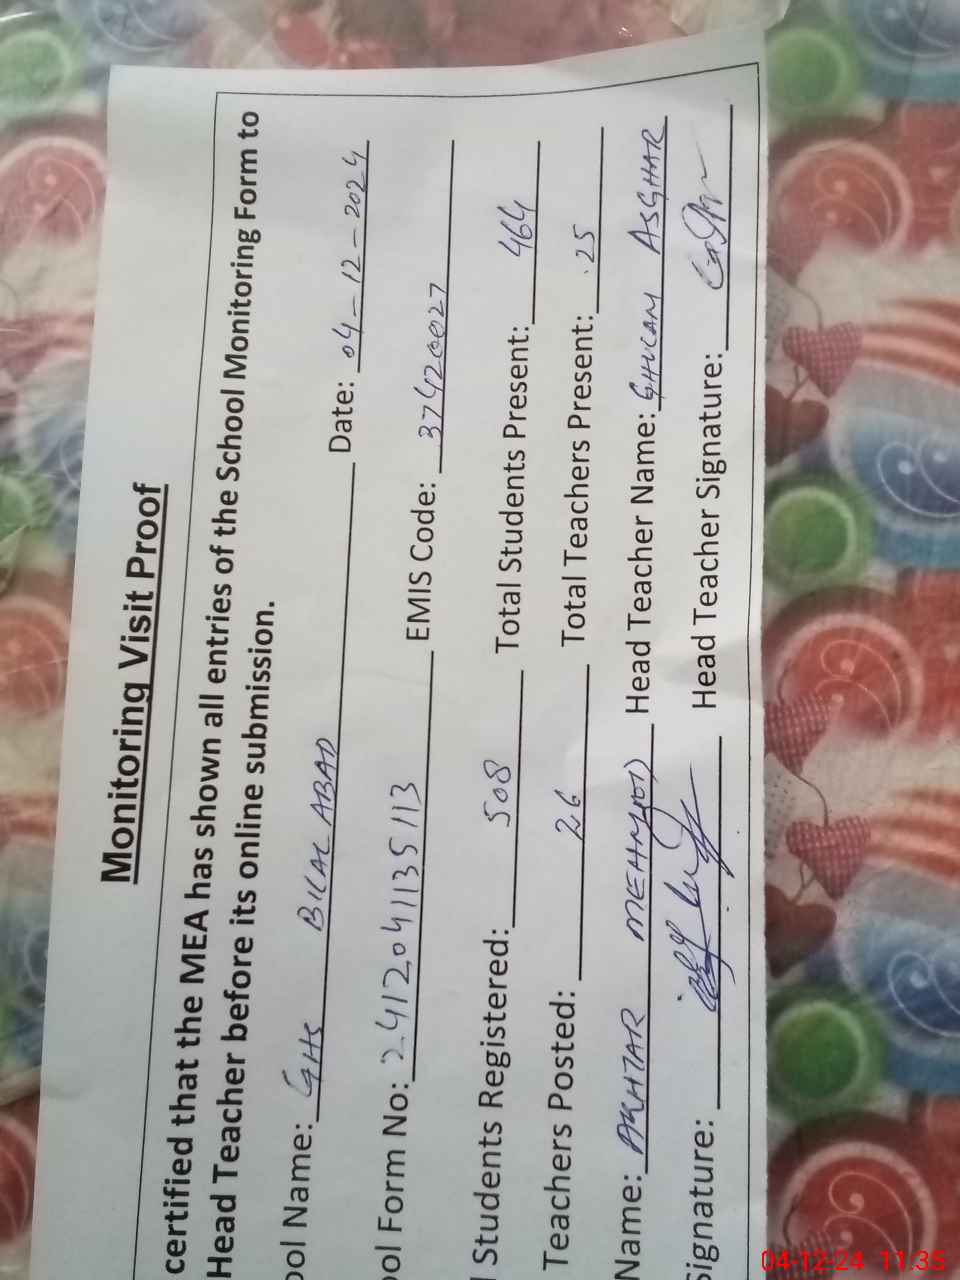 Monitoring Visit Proof
certified that the MEA has shown all entries of the School Monitoring Form to
Head Teacher before its online submission.
ool Name: GHS BILAL ABAD Date: 04-12-2024
ool Form No: 2412041135113 EMIS Code: 37420027
l Students Registered: 508 Total Students Present: 464
Teachers Posted: 26 Total Teachers Present: 25
Name: AKHTAR MEHMOOD Head Teacher Name: GHULAM ASGHAR
Signature: Head Teacher Signature:
04-12-24 11:35